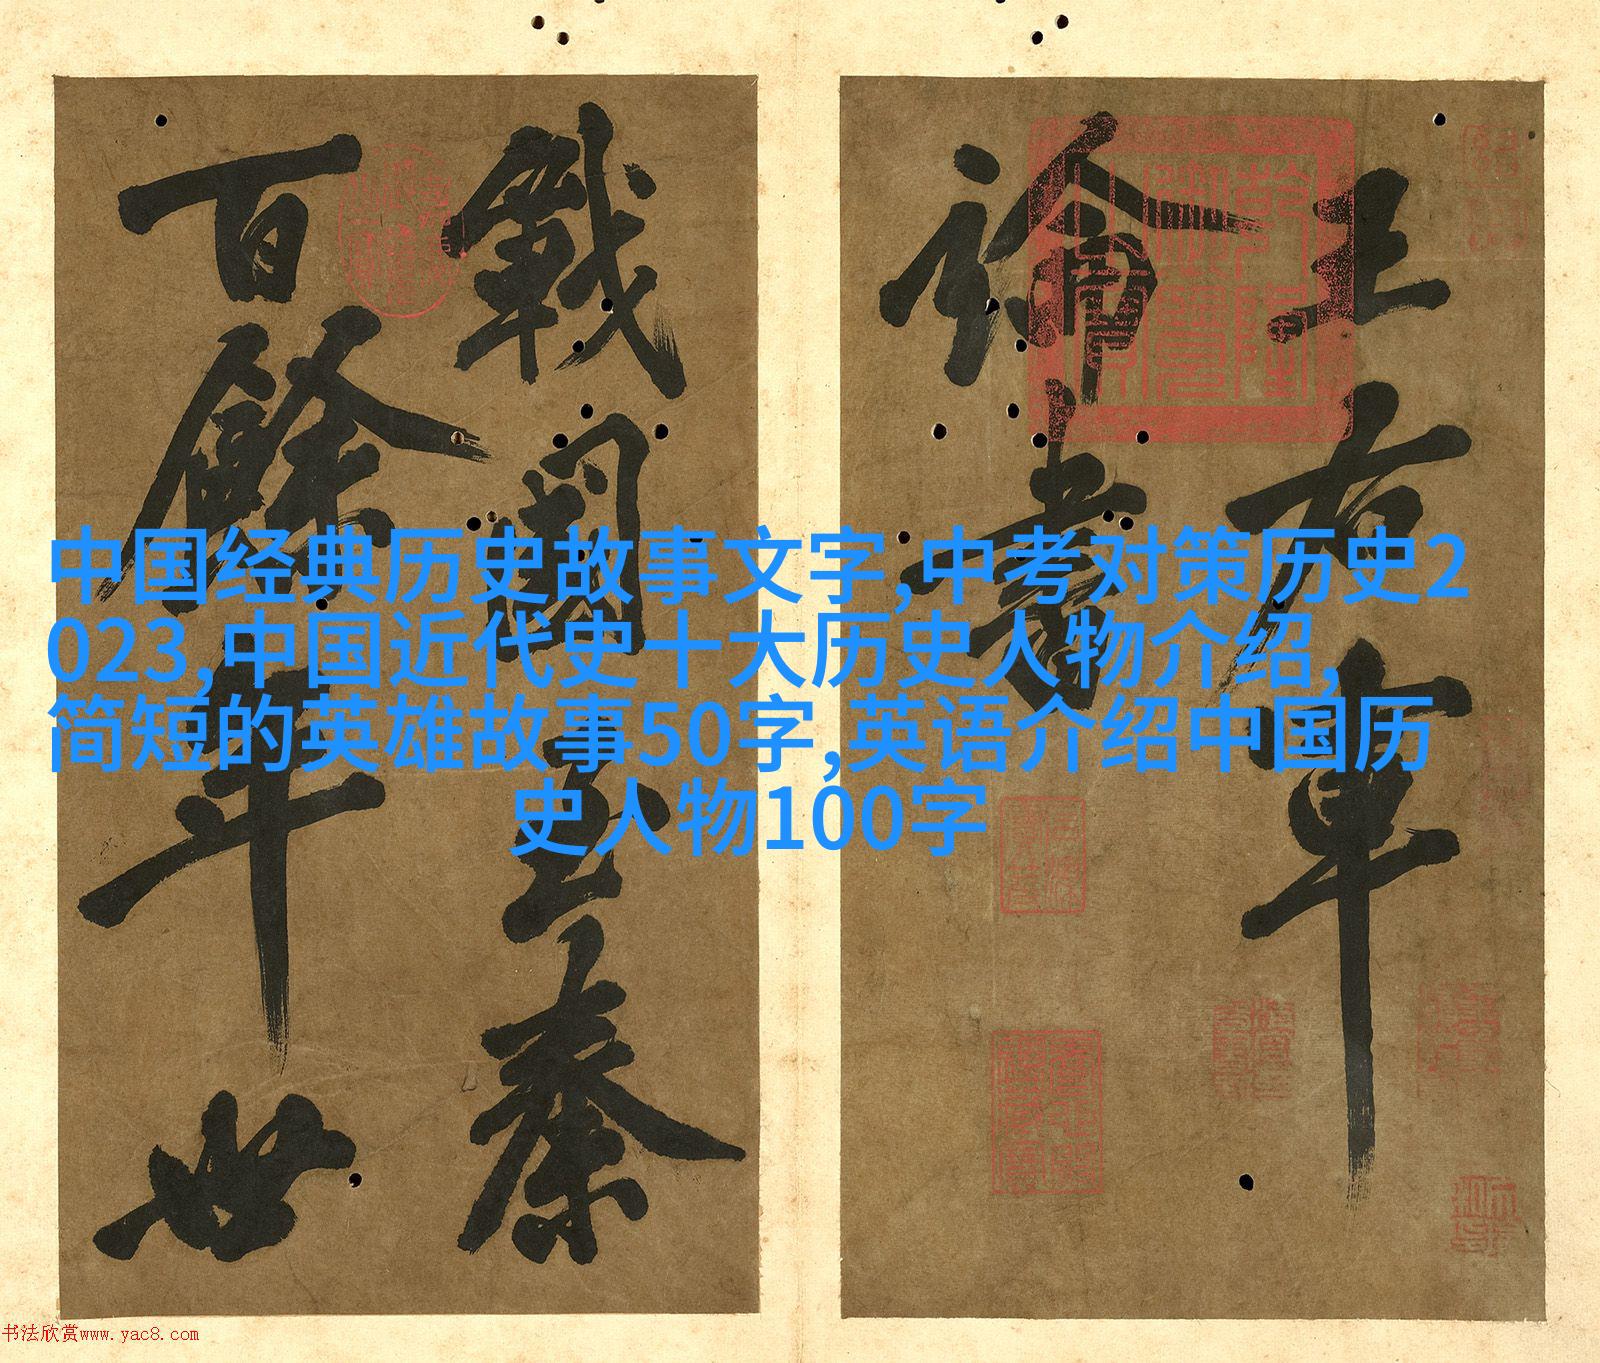 王右軍
論書
戰國至秦
百餘年世
中国经典历史故事文字,中考对策历史2
023,中国近代史十大历史人物介绍,
简短的英雄故事50字,英语介绍中国历
史人物100字
书法欣赏www.yac8.com